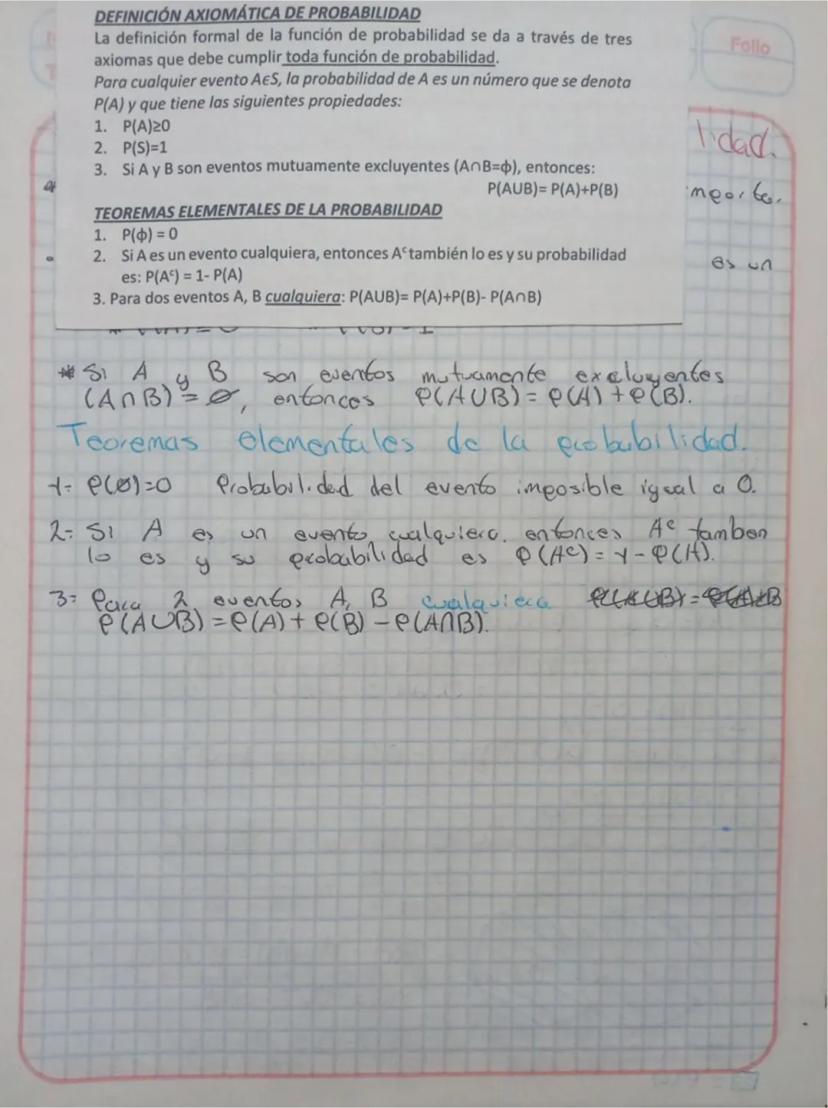 DEFINICIÓN AXIOMÁTICA DE PROBABILIDAD
La definición formal de la función de probabilidad se da a través de tres
axiomas que debe cumplir toda función de probabilidad.
Para cualquier evento AϵS, la probabilidad de A es un número que se denota
P(A) y que tiene las siguientes propiedades:
1. P(A)≥0
2. P(S)=1
3. Si A y B son eventos mutuamente excluyentes (A∩B=ϕ), entonces:
P(AUB)= P(A)+P(B)
TEOREMAS ELEMENTALES DE LA PROBABILIDAD
1. P(ϕ) = 0
2. Si A es un evento cualquiera, entonces Aᶜ también lo es y su probabilidad
es: P(Aᶜ) = 1- P(A)
3. Para dos eventos A, B cualquiera: P(AUB)= P(A)+P(B)- P(A∩B)
Folio
lidad.
es un
* Si A y B son eventos mutuamente excluyentes
(A∩B)=∅, entonces P(AUB)= P(A)+P(B).
Teoremas elementales de la probabilidad.
1= P(∅)=0 Probabilidad del evento imposible igual a 0.
2= Si A es un evento cualquiera. entonces Aᶜ tamben
lo es y su probabilidad es P(Aᶜ) = 1-P(A).
3= Para 2 eventos A, B cualquiera
P(AUB)=P(A)+P(B)-P(A∩B).